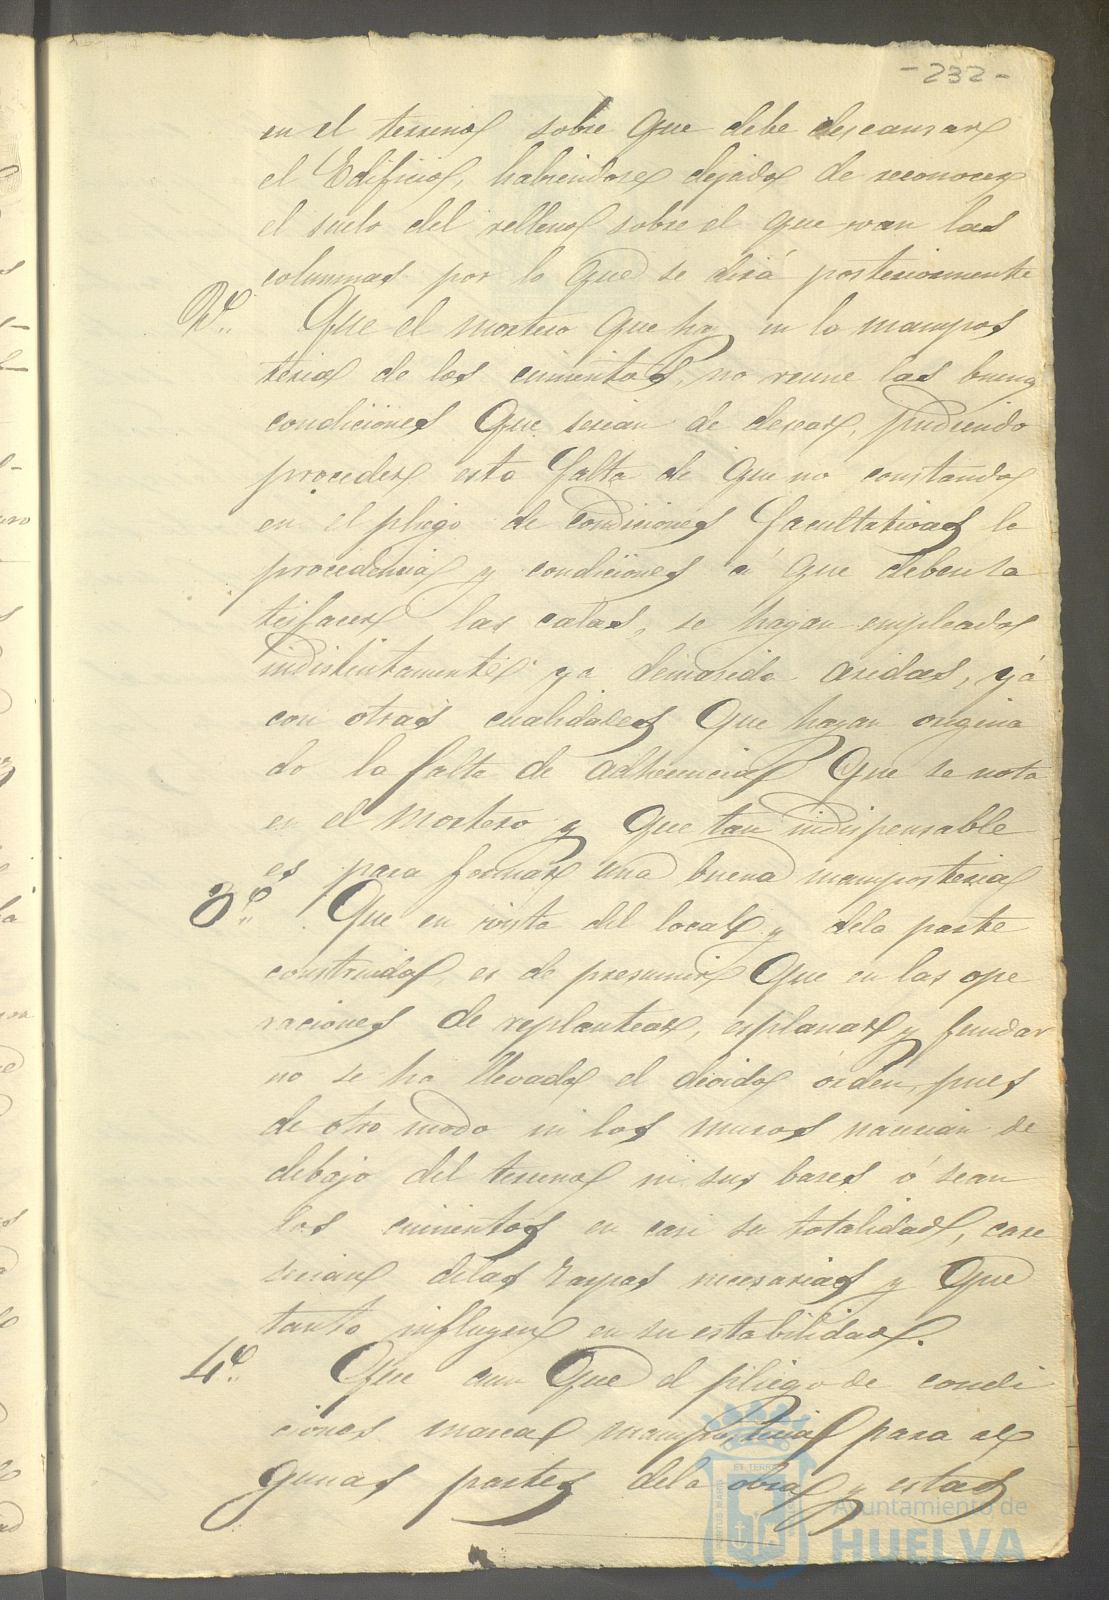 - 232 -
en el terreno sobre que debe descansar
el Edificio, habiendose dejado de reconocer
el suelo del relleno sobre el que van las
columnas por lo que se dirá posteriormente
2º Que el mortero que hay en la mampos
teria de los cimientos, no reune las buenas
condiciones que serian de desear, pudiendo
proceder esta falta de que no constando
en el pliego de condiciones facultativas la
procedencia y condiciones á que deben sa
tisfacer las calas, se hayan empleado
indistintamente ya demasido aridas, yá
con otras cualidades que hayan origina
do la falta de adherencia que se nota
en el mortero y que tan indispensable
es para formar una buena mamposteria
3º Que en vista del local y dela parte
construida, es de presumir que en las ope
raciones de replantear, esplanar y fundar
no se ha llevado el devido órden, pues
de otro modo ni los muros nacerian de
debajo del terreno ni sus bases ó sean
los cimientos en casi su totalidad, care
cerian delas zarpas necesarias y que
tanto influyen en su estabilidad.
4º Que aun que el pliego de condi
ciones marca mamposteria para al
gunas partes dela obra y estas
Ayuntamiento de
HUELVA